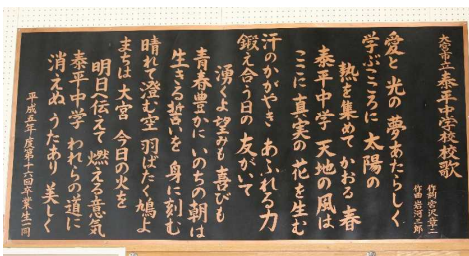 大宮市立泰平中学校校歌
作詞 宮沢章二
作曲 岩河三郎
愛と光の夢あたらしく
学ぶこころに太陽の
熱を集めてかおる春
泰平中学天地の風は
ここに真実の花を生む
汗のかがやきあふれる力
鍛え合う日の友がいて
湧くよ望みも喜びも
青春豊かにいのちの朝は
生きる誓いを身に刻む
晴れて澄む空羽ばたく鳩よ
まちは大宮今日の火を
明日へ伝えて燃える意気
泰平中学われらの道に
消えぬうたあり美しく
平成五年度第十六回卒業生一同